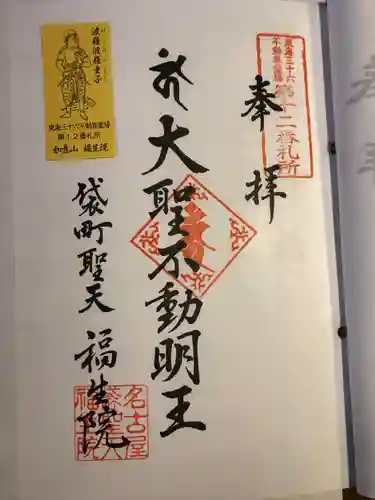 東海三十六
不動尊霊場
第十二番札所
奉拝
大聖不動明王
袋町聖天 福生院
波羅波羅童子
東海三十六不動尊霊場
第12番札所
如意山 福生院
名古屋
袋町聖天
福生院